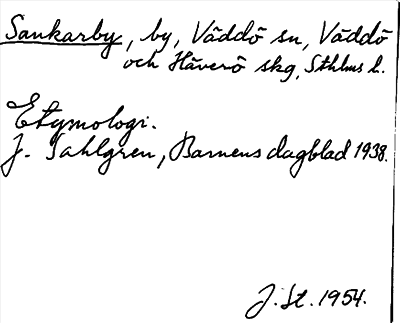 Sankarby, by, Väddö sn, Väddö
och Häverö skg, Sthlms l.
Etymologi.
J. Sahlgren, Barnens dagblad 1938.
J. St. 1954.